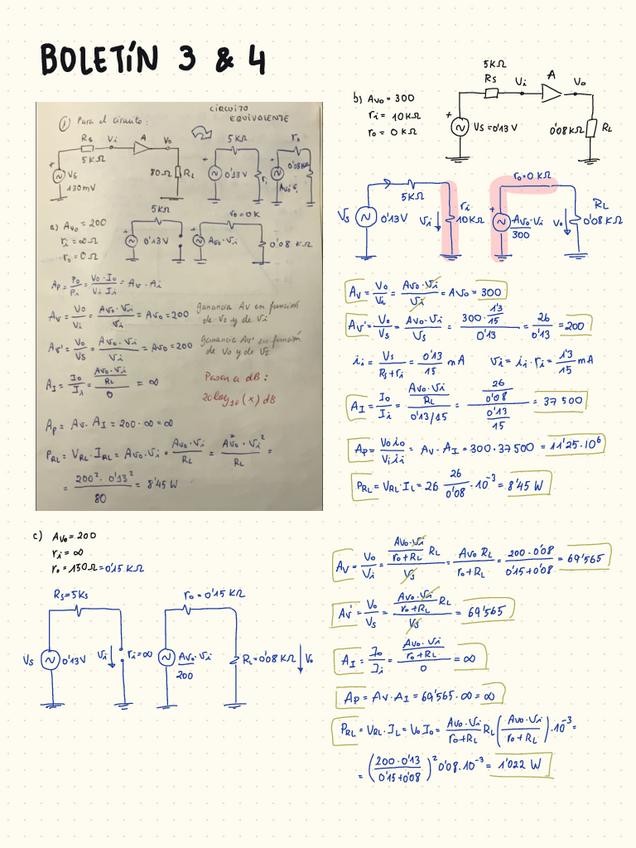 BOLETÍN 3 & 4
① Para el circuito:
CIRCUITO
EQUIVALENTE
Rs Vi A Vo
5KΩ
Vs
130mV
80Ω RL
5KΩ
0'13V
ri
ro
a) Avo = 200
ri = ∞ Ω
ro = 0 Ω
5KΩ
0'13V
Avo·Vi
0'08 KΩ
Ap = Po/Pi = Vo·Io/Vi·Ii = Av·Ai
Av = Vo/Vi = Avo·Vi/Vi = Avo = 200
ganancia Av en función
de Vo y de Vi
Av' = Vo/Vs = Avo·Vi/Vs = Avo = 200
ganancia Av' en función
de Vo y de Vs
AI = Io/Ii = (Avo·Vi/RL)/0 = ∞
Pasar a dB:
20log10(x) dB
Ap = Av·AI = 200·∞ = ∞
PRL = VRL·IRL = Avo·Vi·Avo·Vi/RL = Avo²·Vi²/RL =
= 200²·0'13²/80 = 8'45 W
b) Avo = 300
ri = 10KΩ
ro = 0 KΩ
5KΩ
Rs Vi A Vo
Vs = 0'13V
0'08KΩ RL
ro = 0 KΩ
5KΩ
Vs 0'13V
Vi ri 10KΩ
Avo·Vi
300
Vo
RL
0'08 KΩ
Av = Vo/Vi = Avo·Vi/Vi = Avo = 300
Av' = Vo/Vs = Avo·Vi/Vs = (300·1'3/15)/0'13 = 26/0'13 = 200
ii = Vs/(Rs+ri) = 0'13/15 mA Vi = ii·ri = 1'3/15 mA
AI = Io/Ii = (Avo·Vi/RL)/(0'13/15) = (26/0'08)/(0'13/15) = 37 500
Ap = Vo io/Vi ii = Av·AI = 300·37 500 = 11'25·10⁶
PRL = VRL·IL = 26 26/0'08 ·10⁻³ = 8'45 W
c) Avo = 200
ri = ∞
ro = 150Ω = 0'15 KΩ
Rs = 5Ks
ro = 0'15 KΩ
Vs 0'13V
Vi ri = ∞
Avo·Vi
200
RL = 0'08 KΩ Vo
Av = Vo/Vi = (Avo·Vi/(ro+RL) RL)/Vs = Avo RL/(ro+RL) = 200·0'08/(0'15+0'08) = 69'565
Av' = Vo/Vs = (Avo·Vi/(ro+RL) RL)/Vs = 69'565
AI = Io/Ii = (Avo·Vi/(ro+RL))/0 = ∞
Ap = Av·AI = 69'565·∞ = ∞
PRL = VRL·IL = Vo Io = Avo·Vi/(ro+RL) RL (Avo·Vi/(ro+RL))·10⁻³ =
= (200·0'13/(0'15+0'08))² 0'08·10⁻³ = 1'022 W